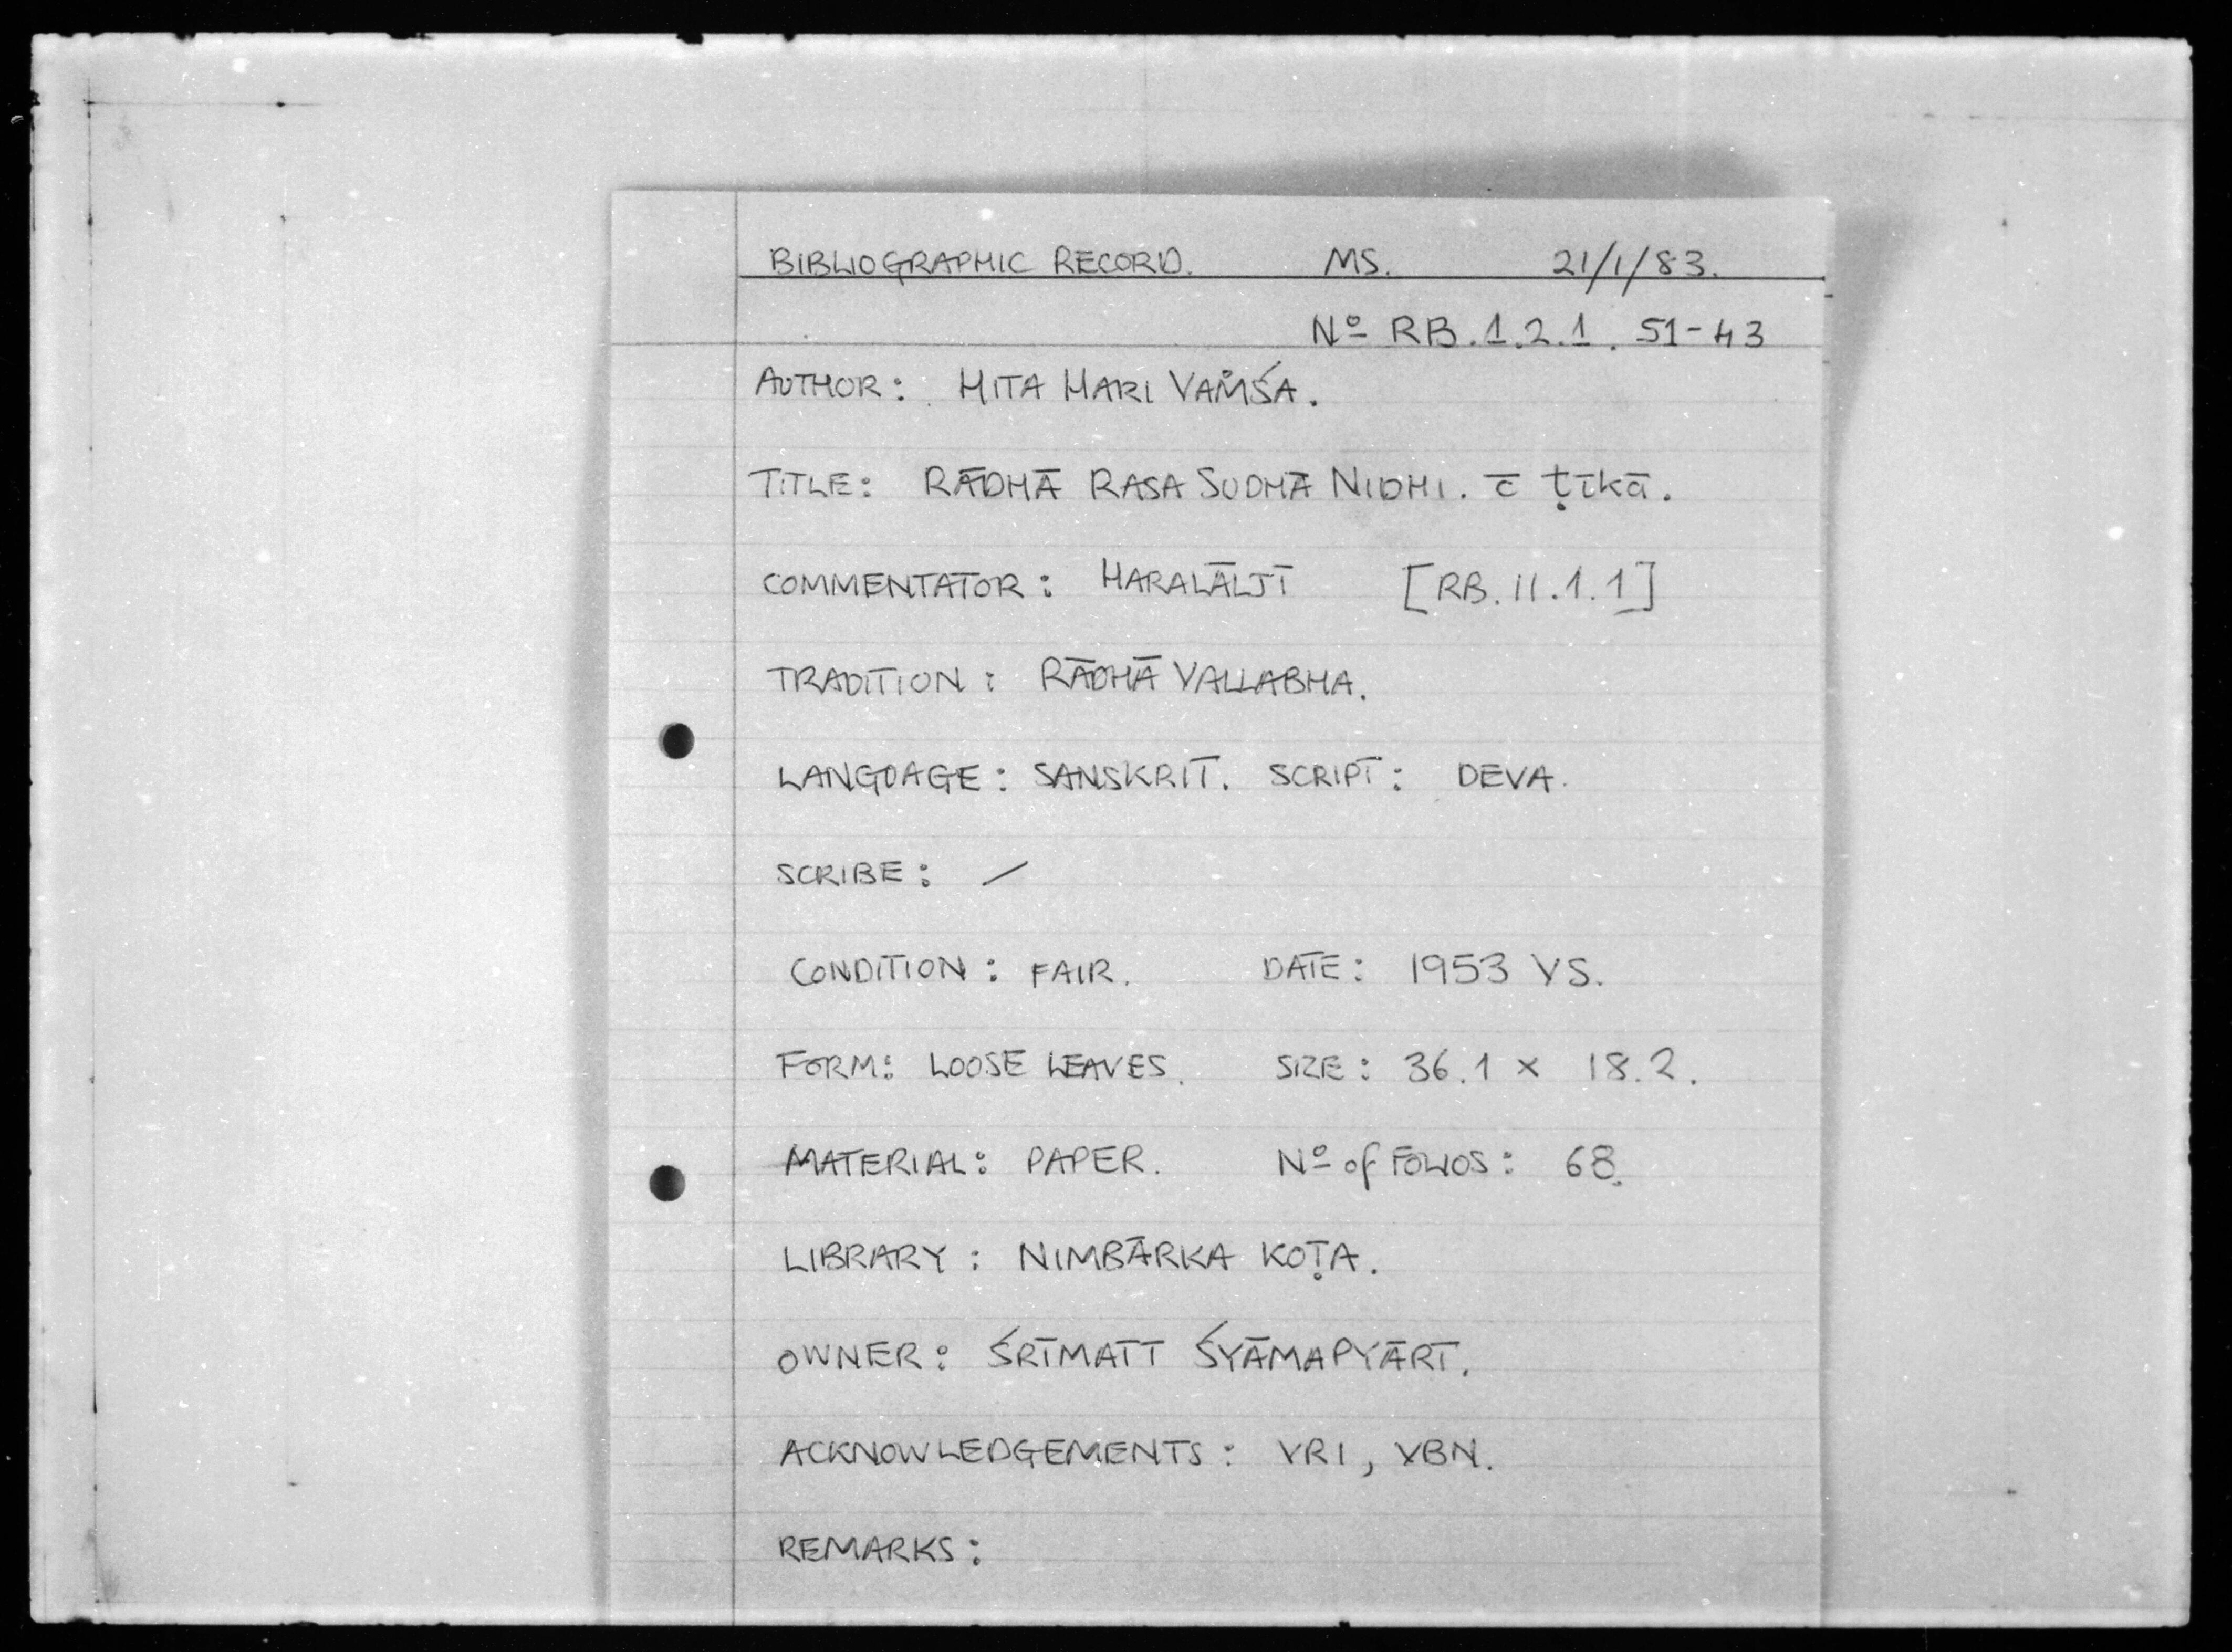 BIBLIOGRAPHIC RECORD. MS. 21/1/83.
Nº RB.1.2.1. 51-43
AUTHOR: HITA HARI VAṀŚA.
TITLE: RĀDHĀ RASA SUDHĀ NIDHI. c̄ ṭīkā.
COMMENTATOR: HARALĀLJĪ [RB.II.1.1]
TRADITION: RĀDHĀ VALLABHA.
LANGUAGE: SANSKRIT. SCRIPT: DEVA.
SCRIBE: /
CONDITION: FAIR. DATE: 1953 VS.
FORM: LOOSE LEAVES. SIZE: 36.1 x 18.2.
MATERIAL: PAPER. Nº of FOLIOS: 68.
LIBRARY: NIMBĀRKA KOṬA.
OWNER: ŚRĪMATĪ ŚYĀMAPYĀRĪ.
ACKNOWLEDGEMENTS: VRI, VBN.
REMARKS: